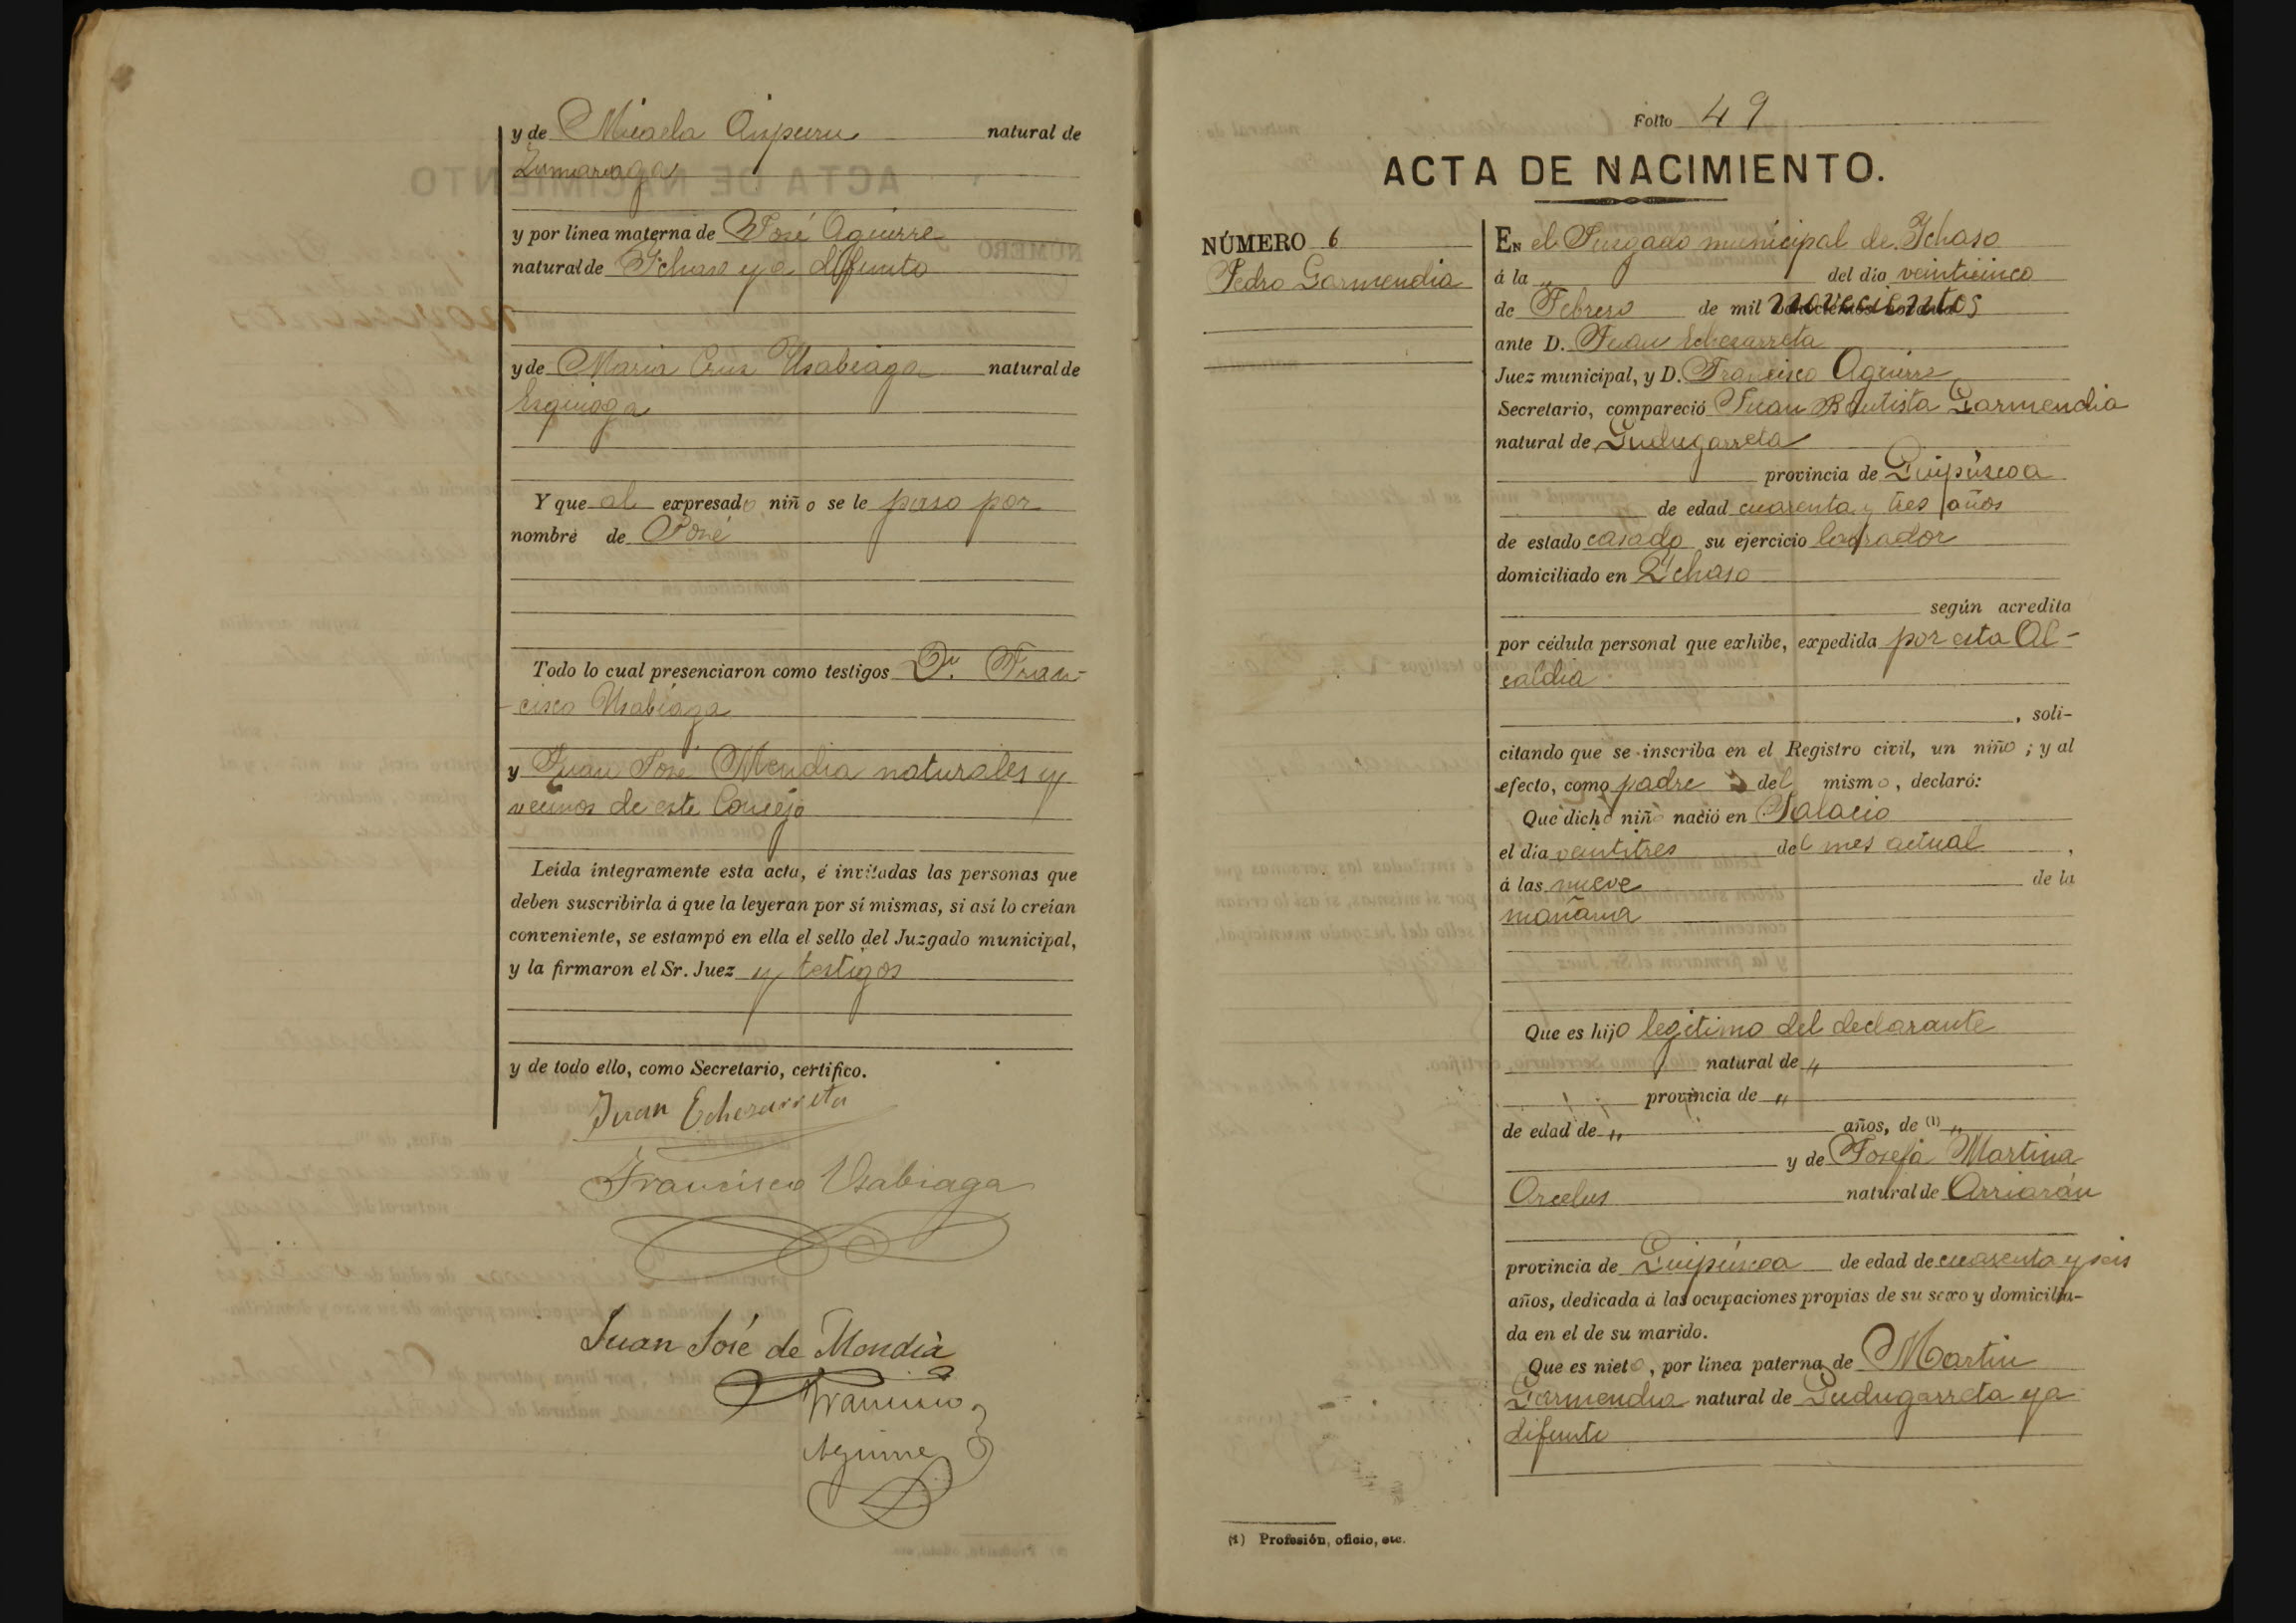 y de Micaela Aispuru natural de
Zumarraga
y por línea materna de José Aguirre
natural de Ichaso ya difunto
y de Maria Cruz Usabiaga natural de
Ezquioga
Y que al expresado niño se le puso por
nombre de José
Todo lo cual presenciaron como testigos Dn. Fran-
cisco Usabiaga
y Juan José Mendia naturales y
vecinos de este Concejo
Leída íntegramente esta acta, é invitadas las personas que
deben suscribirla á que la leyeran por sí mismas, si así lo creían
conveniente, se estampó en ella el sello del Juzgado municipal,
y la firmaron el Sr. Juez y testigos
y de todo ello, como Secretario, certifico.
Juan Echezarreta
Francisco Usabiaga
Juan José de Mendia
Francisco
Aguirre
Folio 49
ACTA DE NACIMIENTO.
NÚMERO 6
Pedro Garmendia
EN el Juzgado municipal de Ichaso
á la " del dia veinticinco
de Febrero de mil novecientos
ante D. Juan Echezarreta
Juez municipal, y D. Francisco Aguirre
Secretario, compareció Juan Bautista Garmendia
natural de Gudugarreta
provincia de Guipúzcoa
de edad cuarenta y tres años
de estado casado su ejercicio labrador
domiciliado en Ichaso
según acredita
por cédula personal que exhibe, expedida por esta Al-
caldia
, soli-
citando que se inscriba en el Registro civil, un niño; y al
efecto, como padre del mismo, declaró:
Que dicho niño nació en Palacio
el dia veintitres del mes actual,
á las nueve de la
mañana
Que es hijo legítimo del declarante
natural de "
provincia de "
de edad de " años, de (1) "
y de Josefa Martina
Orcelus natural de Arriarán
provincia de Guipúzcoa de edad de cuarenta y seis
años, dedicada á las ocupaciones propias de su sexo y domicilia-
da en el de su marido.
Que es nieto, por línea paterna de Martin
Garmendia natural de Gudugarreta ya
difunto
(1) Profesión, oficio, etc.